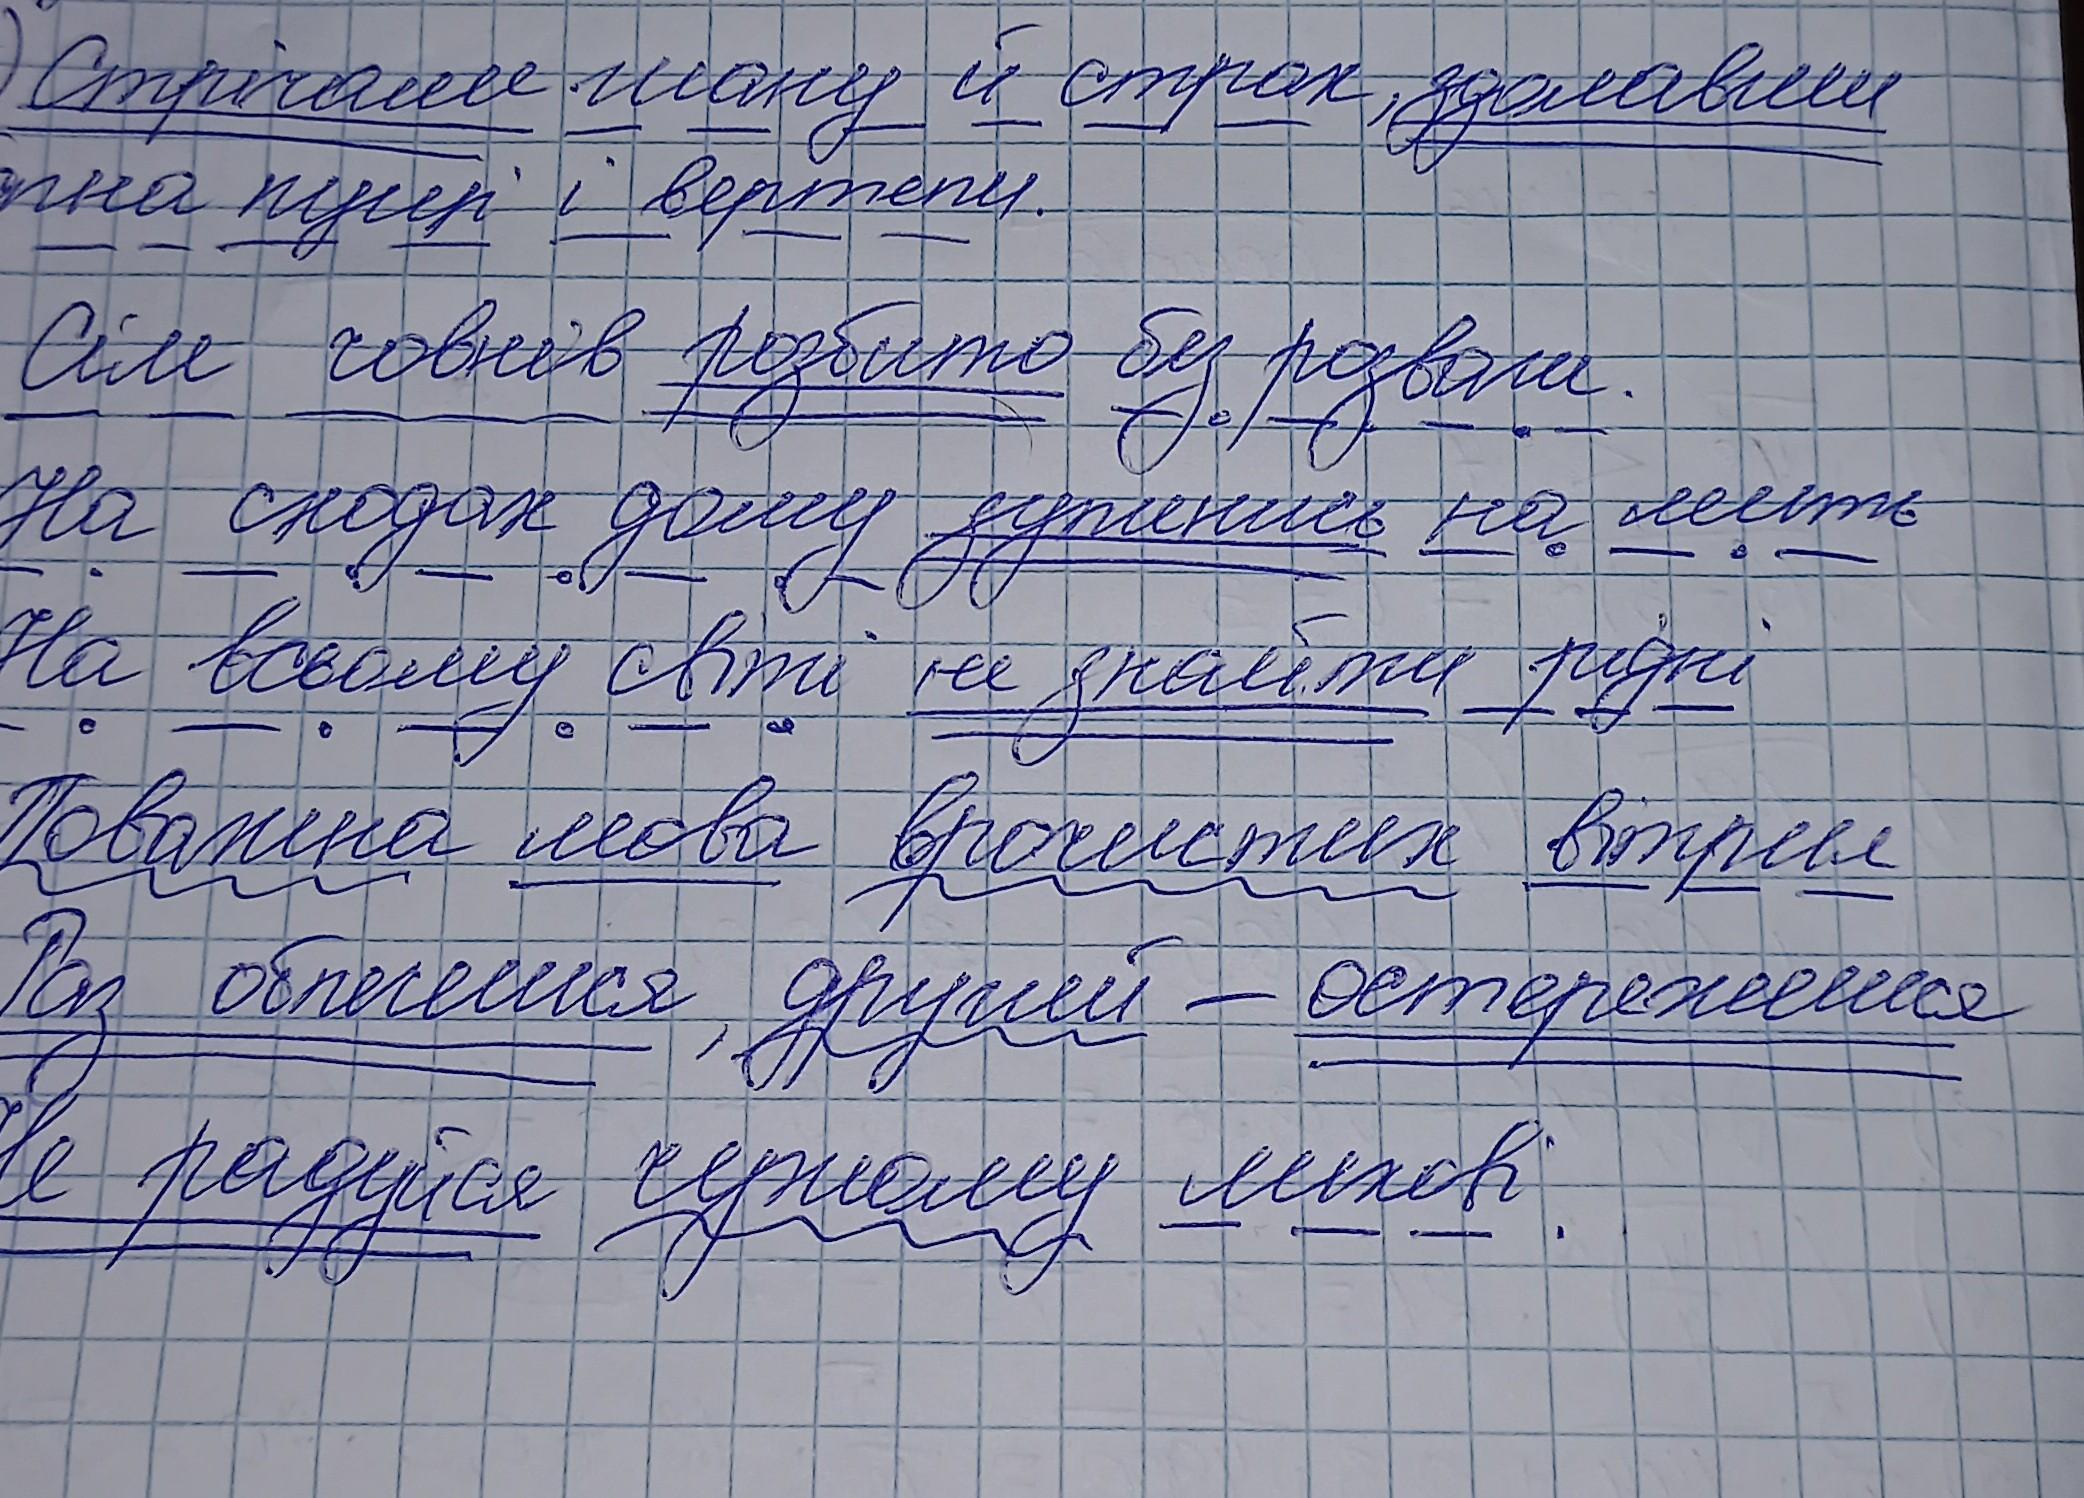 ) Стрічали шану й страх, здолавши
пна пущі і вертепи.
Сім човнів розбито без розваги.
На сходах дому зупинись на мить
На всьому світі не знайти рідні
Поважна мова врочистих вітрил
Раз обпечешся, другий – остережешся
Не радуйся чужому лихові.